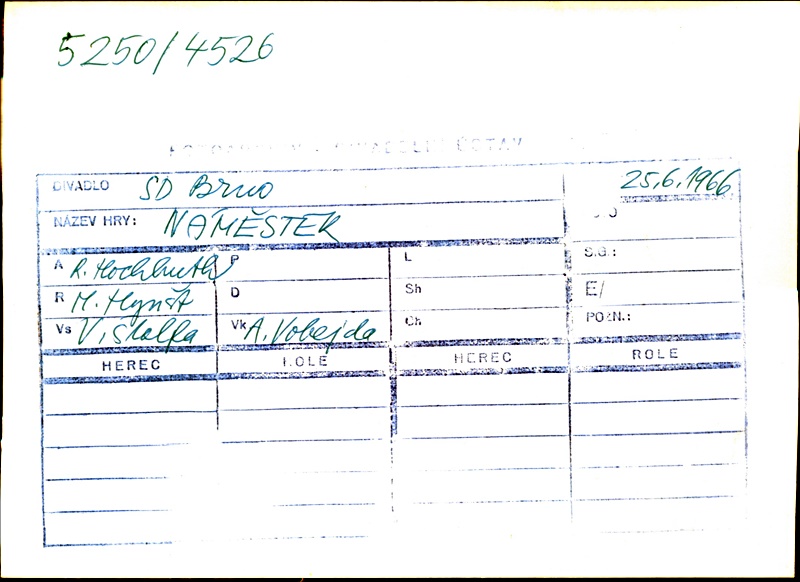 5250/4526
DIVADELNÍ ÚSTAV
DIVADLO SD Brno 25.6.1966
NÁZEV HRY: NÁMĚSTEK
A R. Hochhuth P L S.G.:
R M. Hynšt D Sh E/
Vs V. Štolfa Vk A. Vobejda Ch POZN.:
HEREC ROLE HEREC ROLE